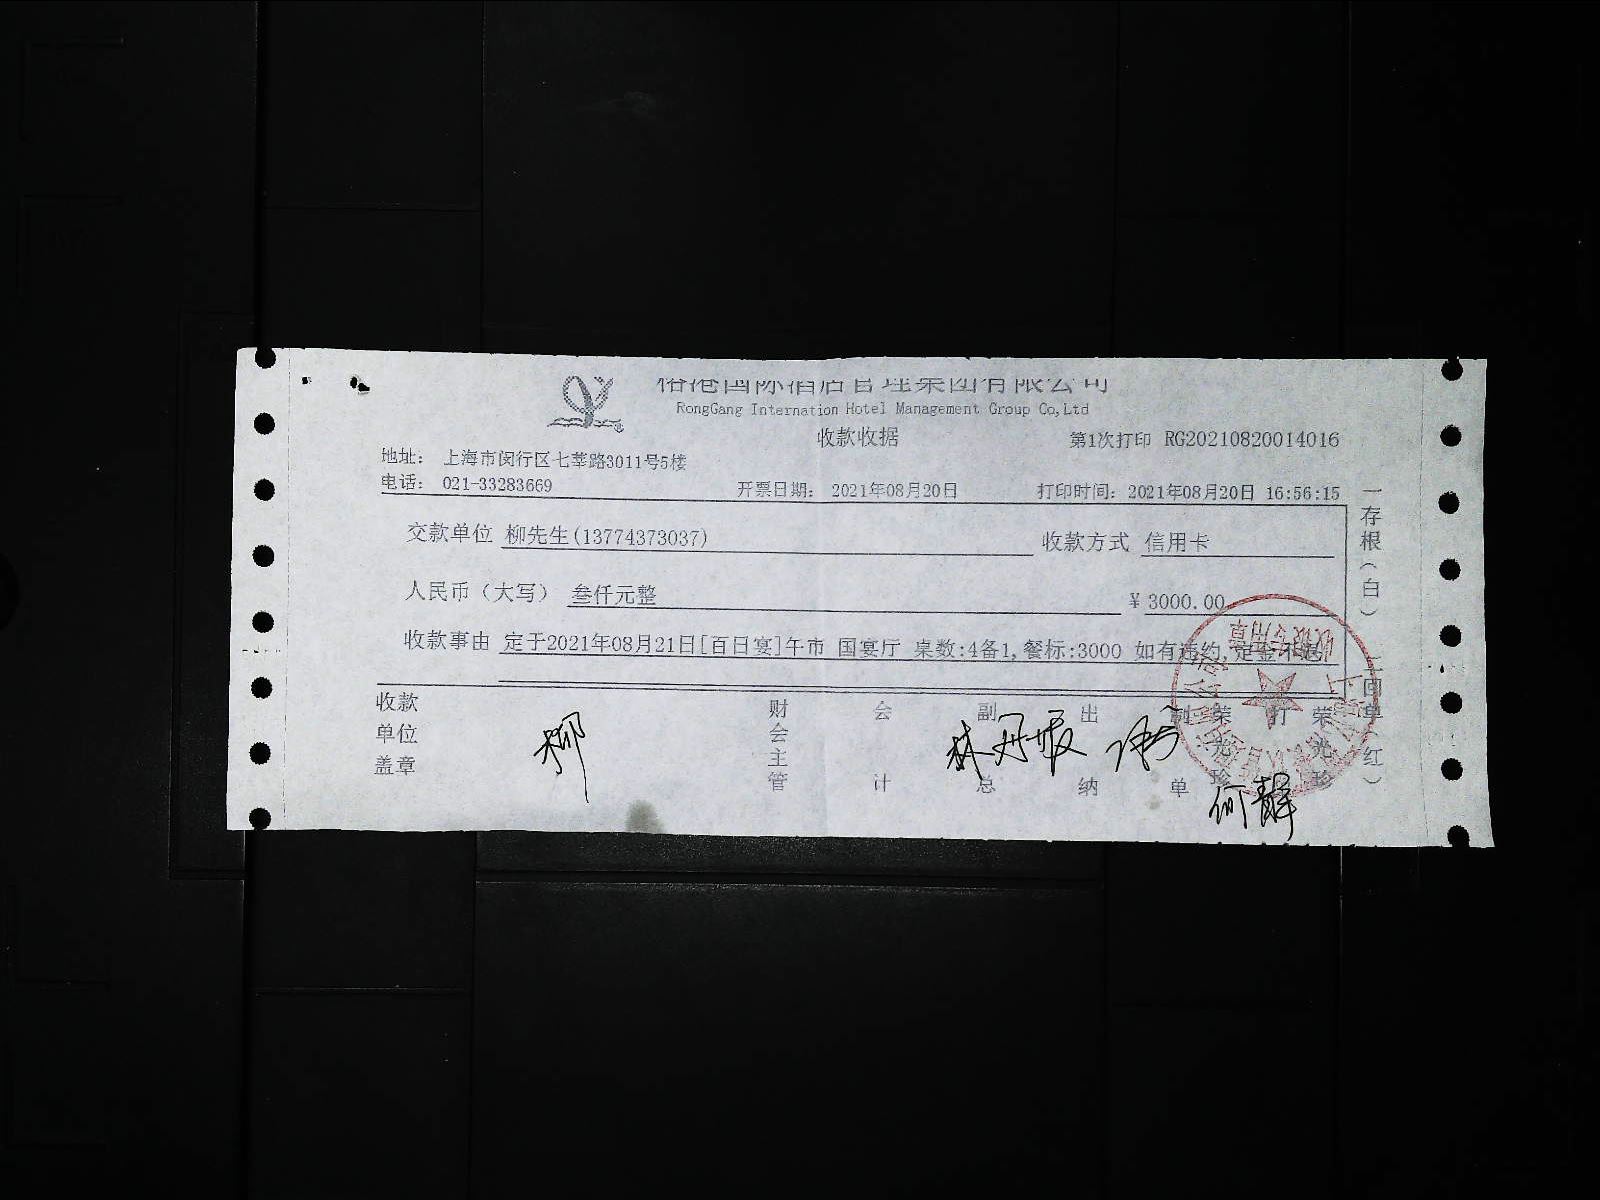 榕港国际酒店管理集团有限公司
RongGang Internation Hotel Management Group Co,Ltd
收款收据
第1次打印 RG20210820014016
地址： 上海市闵行区七莘路3011号5楼
电话： 021-33283669
开票日期： 2021年08月20日
打印时间：2021年08月20日 16:56:15
交款单位 柳先生(13774373037)
收款方式 信用卡
人民币（大写） 叁仟元整
¥ 3000.00
收款事由 定于2021年08月21日[百日宴]午市 国宴厅 桌数:4备1,餐标:3000 如有违约,定金不退
收款单位盖章
柳
财会主管
会计
副总
出纳
制单
荣光珍
打
荣光珍
何静
一存根（白）
二回单（红）
收银专用章